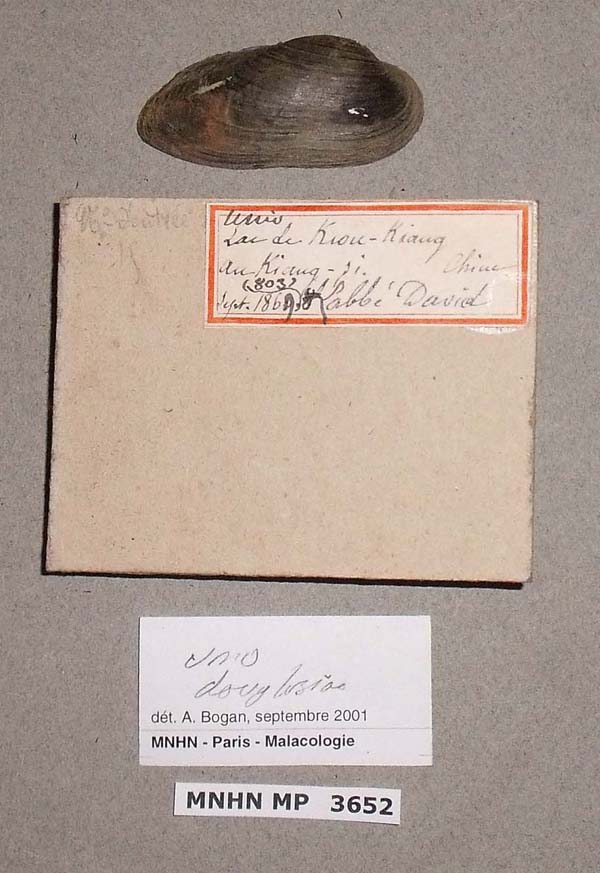 Unio
Lac de Kiou-Kiang
au Kiang-si. Chine
(803)
Sept. 1868 l'abbé David
Unio
douglasiae
dét. A. Bogan, septembre 2001
MNHN - Paris - Malacologie
MNHN MP 3652